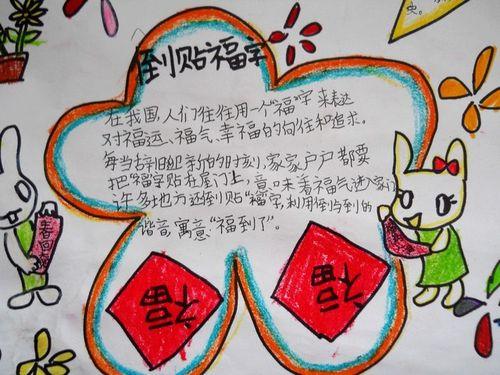 虫。
倒贴福字
在我国,人们往往用一个"福"字来表达
对福运、福气、幸福的向往和追求。
每当辞旧迎新的时刻,家家户户都要
把"福"字贴在屋门上,意味着福气进家门
许多地方还倒贴"福"字,利用倒与到的
谐音,寓意"福到了"。
春回
福
福